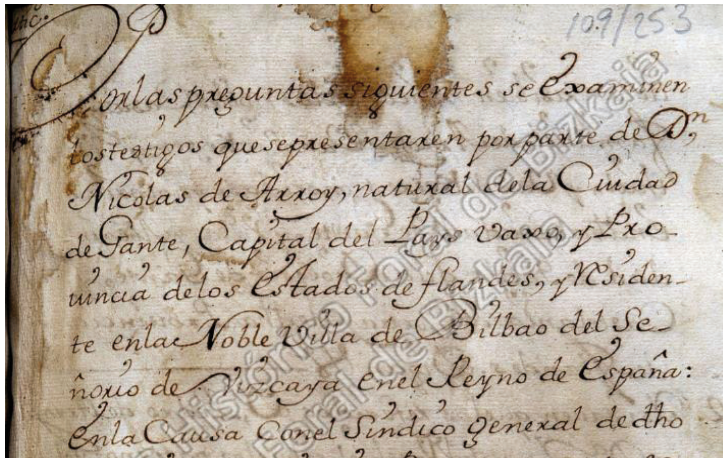 109/253
Por las preguntas siguientes se Examinen
los testigos que se presentaren por parte de Dn,
Nicolas de Arroy, natural dela Ciudad
de Gante, Capital del Pays Vaxo, y Pro-
uincia delos Estados de flandes, y Residen-
te enla Noble Villa de Bilbao del Se-
ñorio de Vizcaya enel Reyno de España:
enla Causa Conel Sindico General de dho